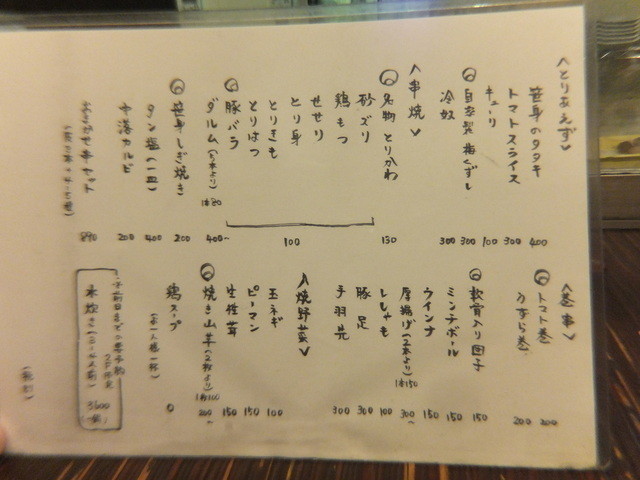 <とりあえず>
笹身のタタキ 400
トマトスライス 300
キューリ 100
自家製 梅くずし 300
冷奴 300
<串焼>
名物 とりかわ 130
砂ズリ
鶏もつ
せせり
とり身
とりきも
とりはつ
豚バラ
100
ダルム(5本より) 1本80 400~
笹身しぎ焼き 200
タン塩(一皿) 400
中落カルビ 200
890
<巻串>
トマト巻 200
うずら巻 200
軟骨入り団子 150
ミンチボール 150
ウインナ 150
厚揚げ(2本より) 1本150 300~
ししゃも 100
豚足 300
手羽先 300
<焼野菜>
玉ネギ 100
ピーマン 150
生椎茸 150
焼き山芋(2枚より) 1枚100 200~
鶏スープ
(お一人様一杯) 0
2F限定
水炊き 3600
(税別)